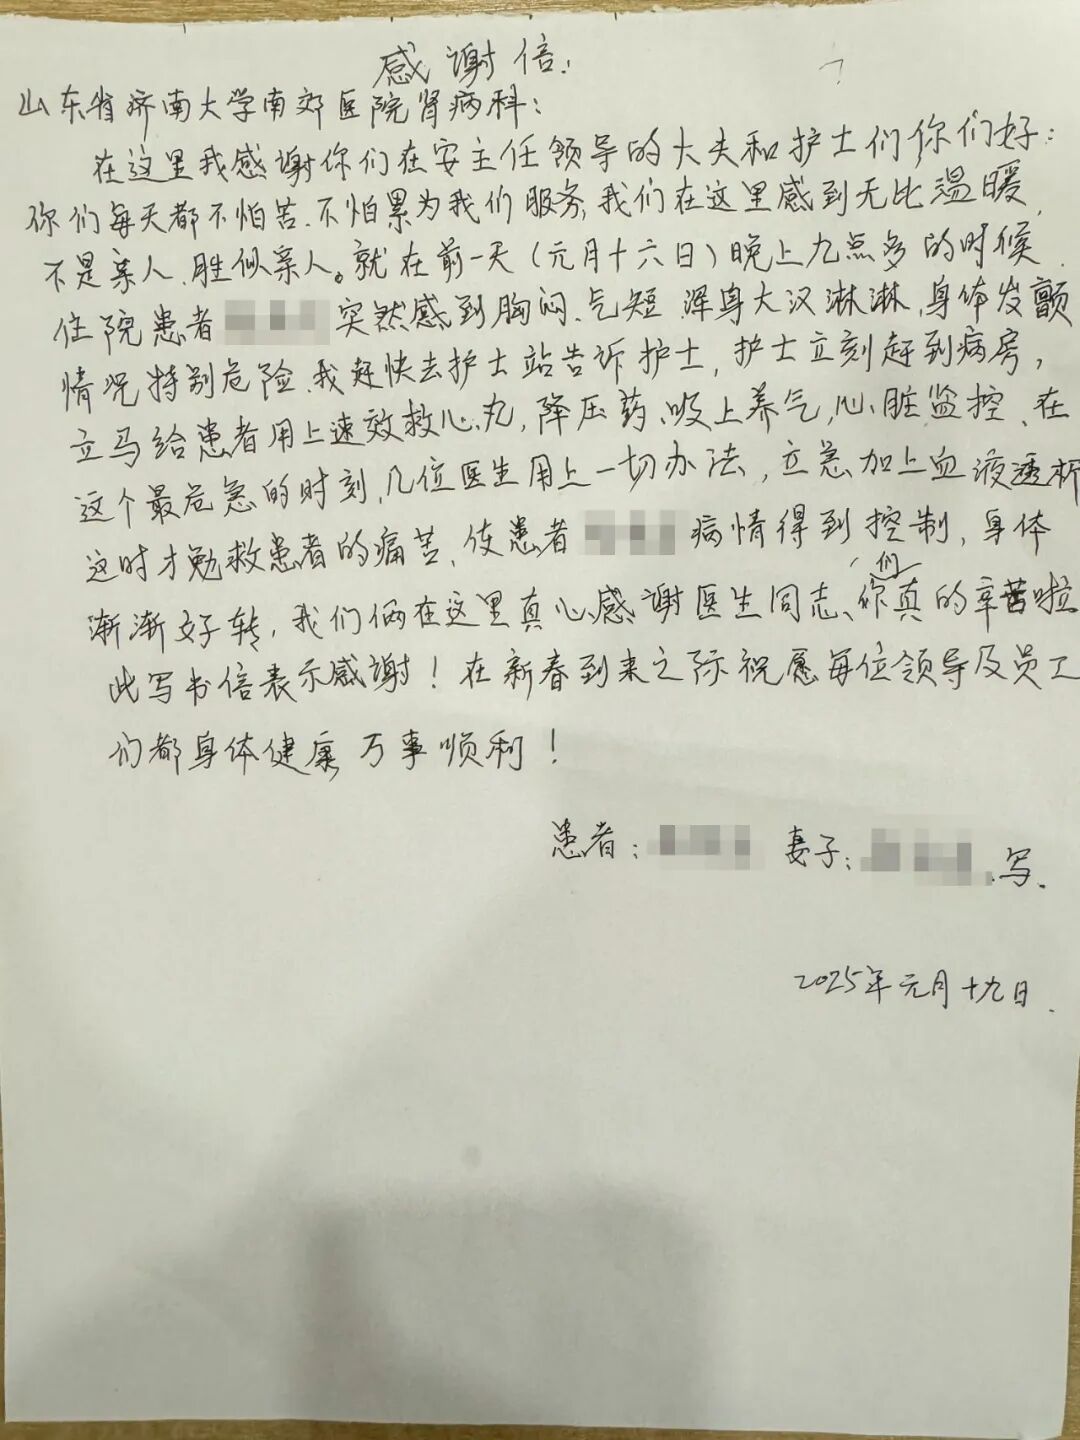 感谢信:
山东省济南大学南郊医院肾病科:
在这里我感谢你们在安主任领导的大夫和护士们你们好:
你们每天都不怕苦.不怕累为我们服务,我们在这里感到无比温暖.
不是亲人、胜似亲人。就在前一天(元月十六日)晚上九点多的时候.
住院患者 突然感到胸闷、气短 浑身大汉淋淋,身体发颤
情况特别危险.我赶快去护士站告诉护士,护士立刻赶到病房,
立马给患者用上速效救心丸,降压药、吸上养气,心脏监控、在
这个最危急的时刻,几位医生用上一切办法,立急加上血液透析
这时才勉救患者的痛苦,使患者 病情得到控制,身体
渐渐好转,我们俩在这里真心感谢医生同志、你们真的辛苦啦
此写书信表示感谢!在新春到来之际祝愿每位领导及员工
们都身体健康 万事顺利!
患者: 妻子: 写.
2025年元月十九日.